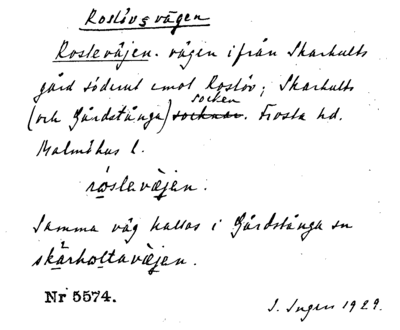 Roslövsvägen
Rosleväjen. vägen ifrån Skarhults
gård söderut emot Roslöv; Skarhults
socken
(och Gårdstånga) socknar. Frosta hd.
Malmöhus l.
róslevæjen.
Samma väg kallas i Gårdstånga sn
skärholtavæjen.
Nr 5574.
I. Ingers 1929.